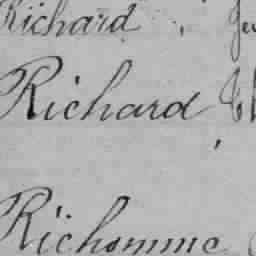 Richard
Richard
Richomme